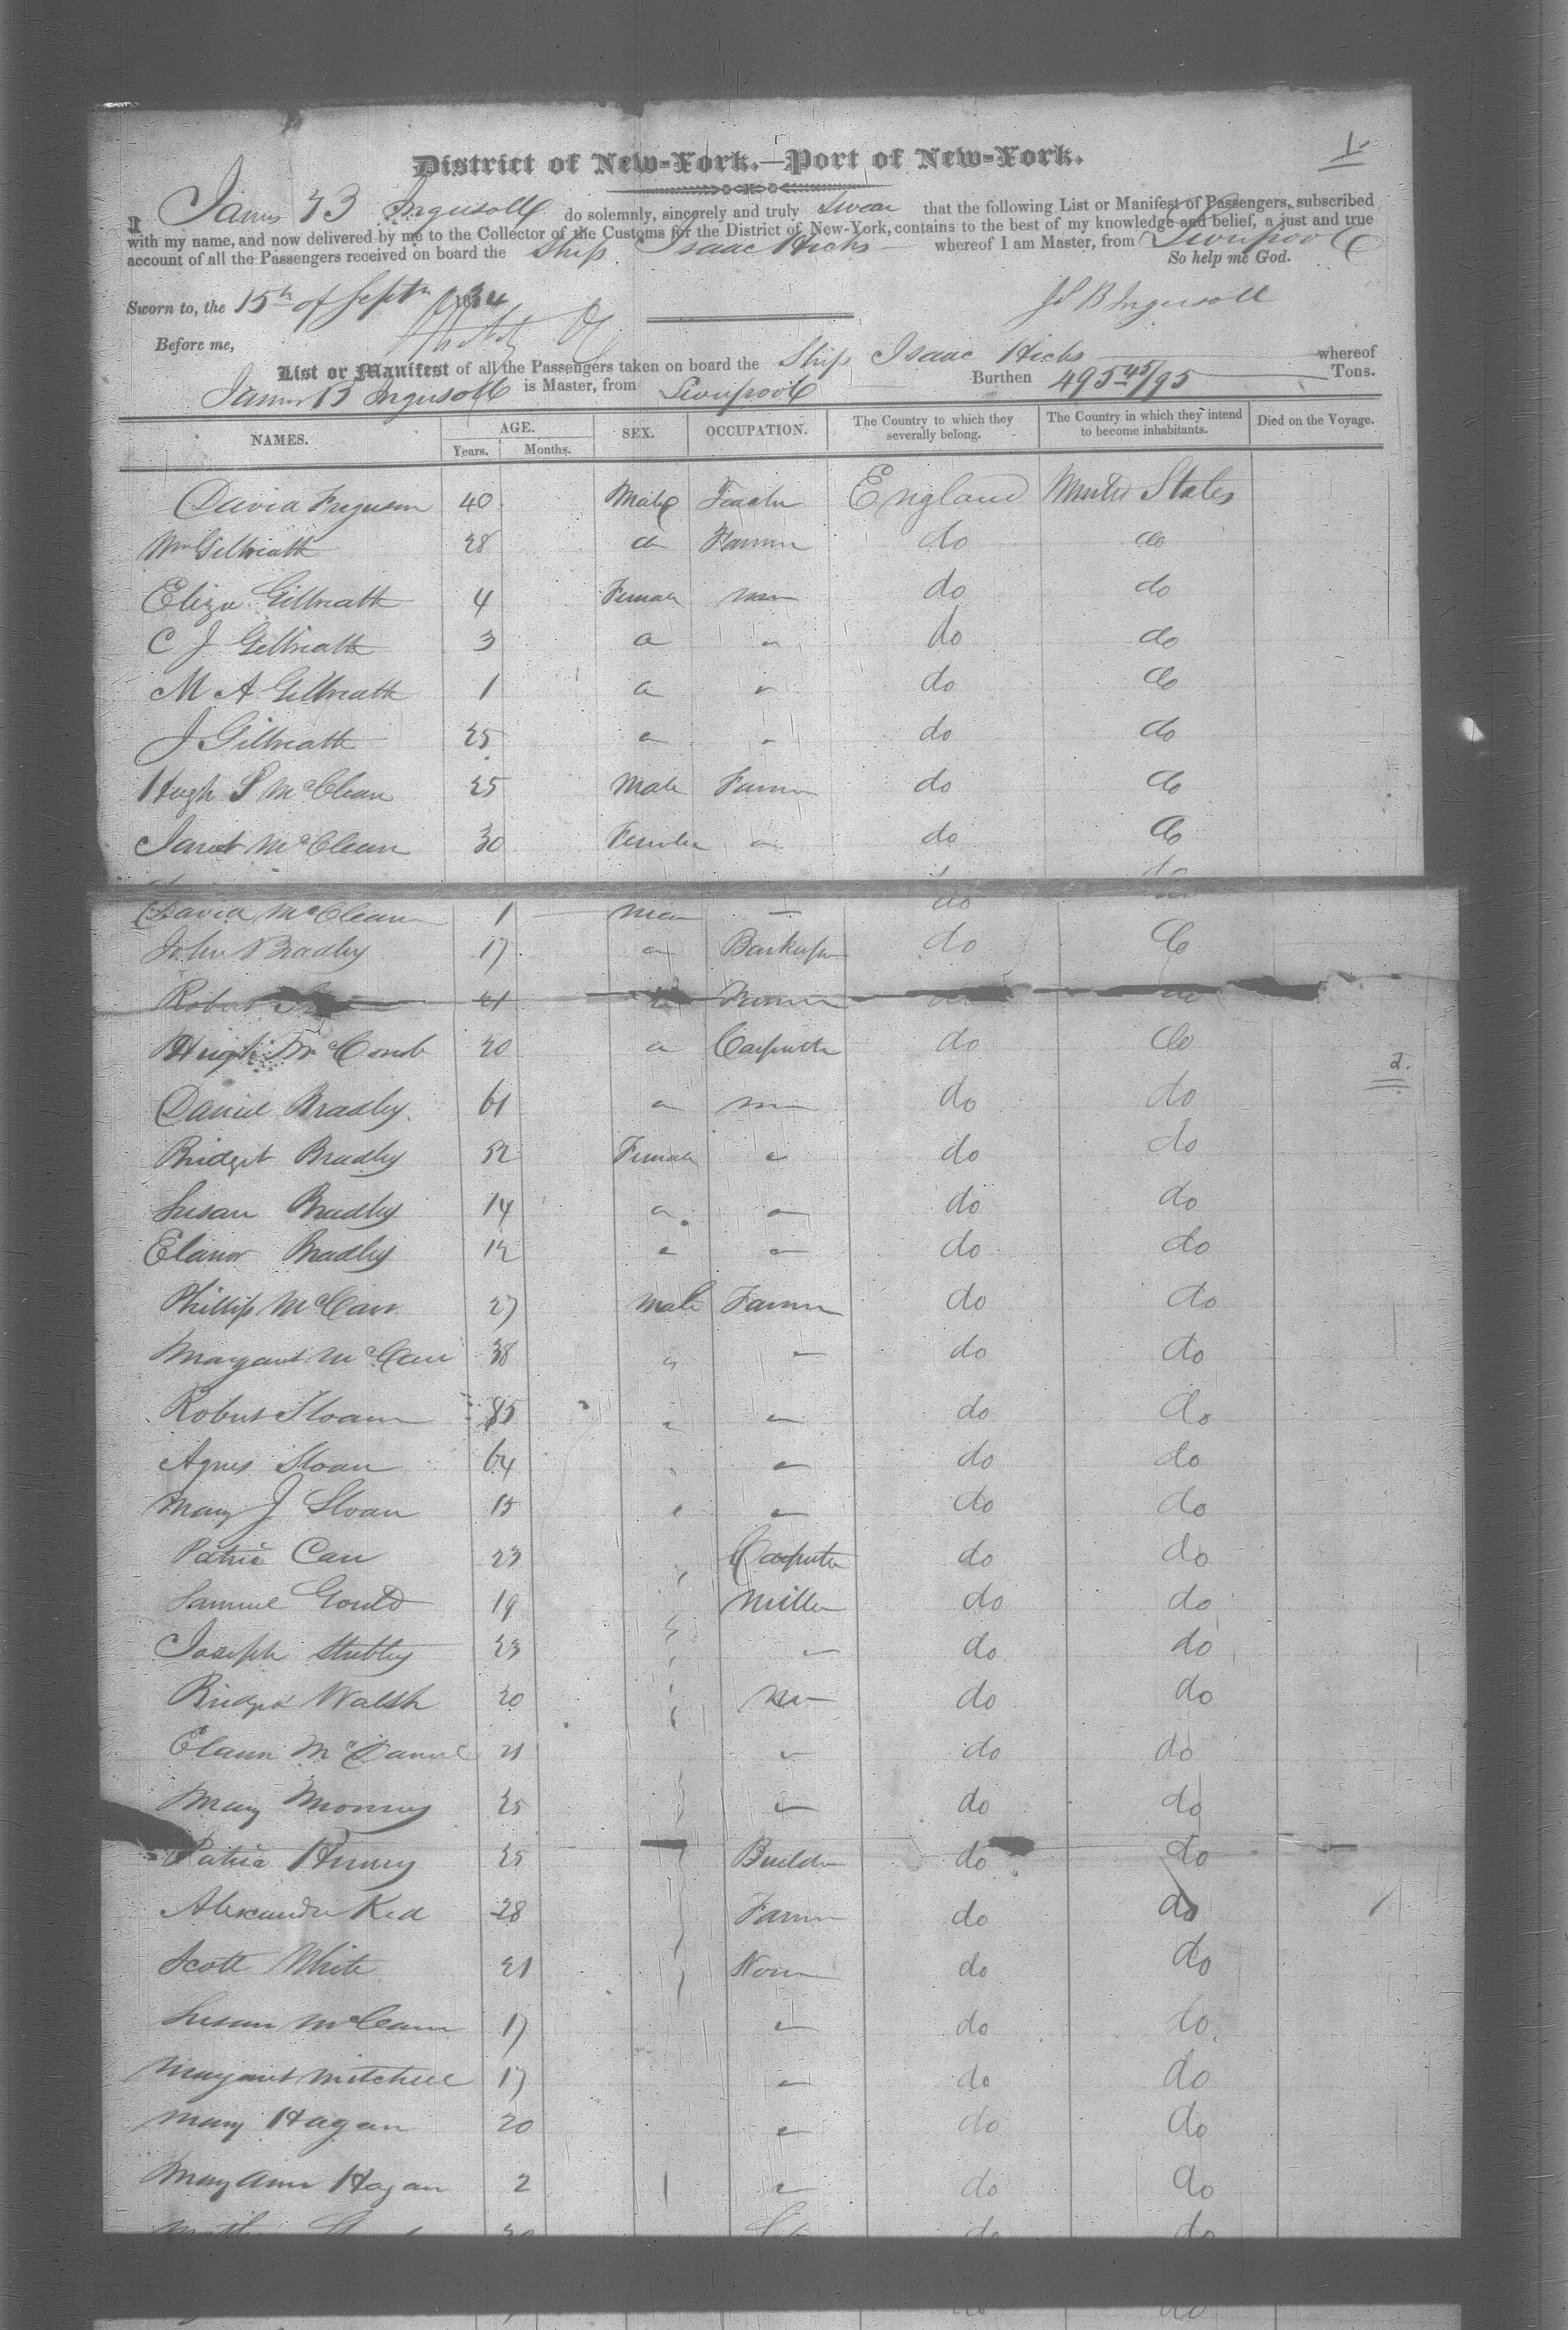 1.
District of New-York.—Port of New-York.
I James B Ingersoll do solemnly, sincerely and truly Swear that the following List or Manifest of Passengers, subscribed
with my name, and now delivered by me to the Collector of the Customs for the District of New-York, contains to the best of my knowledge and belief, a just and true
account of all the Passengers received on board the Ship Isaac Hicks whereof I am Master, from Liverpool
So help me God.
Sworn to, the 15th of Septr 1834 Js B Ingersoll
Before me,
List or Manifest of all the Passengers taken on board the Ship Isaac Hicks whereof
James B Ingersoll is Master, from Liverpool Burthen 495 45/95 Tons.
NAMES. AGE. Years. Months. SEX. OCCUPATION. The Country to which they severally belong. The Country in which they intend to become inhabitants. Died on the Voyage.
David Ferguson 40 Male Teacher England United States
Wm Gilbreath 28 do Farmer do do
Eliza Gilbreath 4 Female do do
C J Gilbreath 3 do do
M A Gilbreath 1 do do
J Gilbreath 25 do do
Hugh S McClean 25 Male Farmer do do
Janet McClean 30 Female do do
David McClean 1 do
John Bradley 17 Barkeeper do do
Robert Farmer
Hugh McComb 20 Carpenter do do
2.
Daniel Bradley 61 do do
Bridget Bradley 52 Female do do
Susan Bradley 14 do do
Elanor Bradley 12 do do
Phillip McCarr 27 Male Farmer do do
Margaret McCarr 38 do do
Robert Sloan do do
Agnes Sloan 64 do do
Mary J Sloan 15 do do
Patric Carr 23 Carpenter do do
Samuel Gould 19 Miller do do
Joseph Stubley 23 do do
Bridget Walsh 20 do do
McDaniel 21 do do
Mary 25 do do
Patric 25 Builder do do
Alexander 28 Farmer do do
Scott White 21 None do do
Susan McCann 17 do do
Margaret Mitchell 17 do do
Mary Hagan 20 do do
Mary Ann Hagan 2 do do
do do